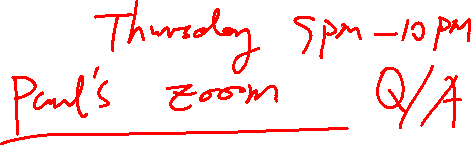 Thursday 9pm-10pm
Paul's zoom Q/A